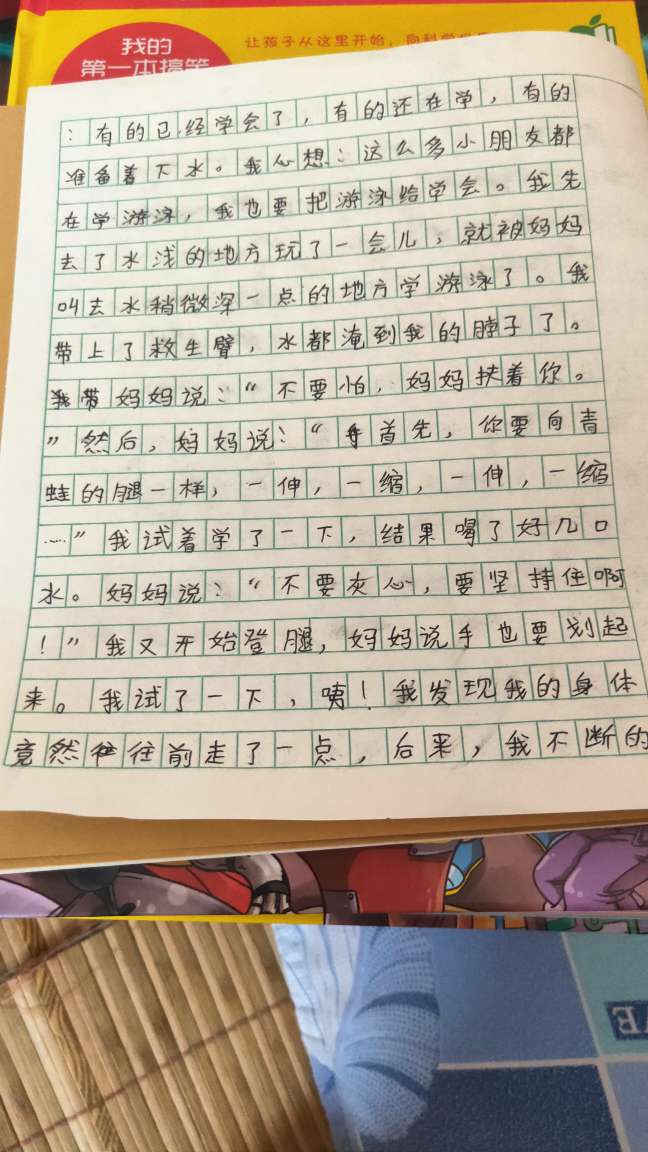 我的
第一本搞笑
让孩子从这里开始，向科学
：有的已经学会了，有的还在学，有的
准备着下水。我心想：这么多小朋友都
在学游泳，我也要把游泳给学会。我先
去了水浅的地方玩了一会儿，就被妈妈
叫去水稍微深一点的地方学游泳了。我
带上了救生臂，水都淹到我的脖子了。
我带妈妈说：“不要怕，妈妈扶着你。
”然后，妈妈说：“首先，你要向青
蛙的腿一样，一伸，一缩，一伸，一缩
……”我试着学了一下，结果喝了好几口
水。妈妈说：“不要灰心，要坚持住啊
！”我又开始登腿，妈妈说手也要划起
来。我试了一下，咦！我发现我的身体
竟然往前走了一点，后来，我不断的